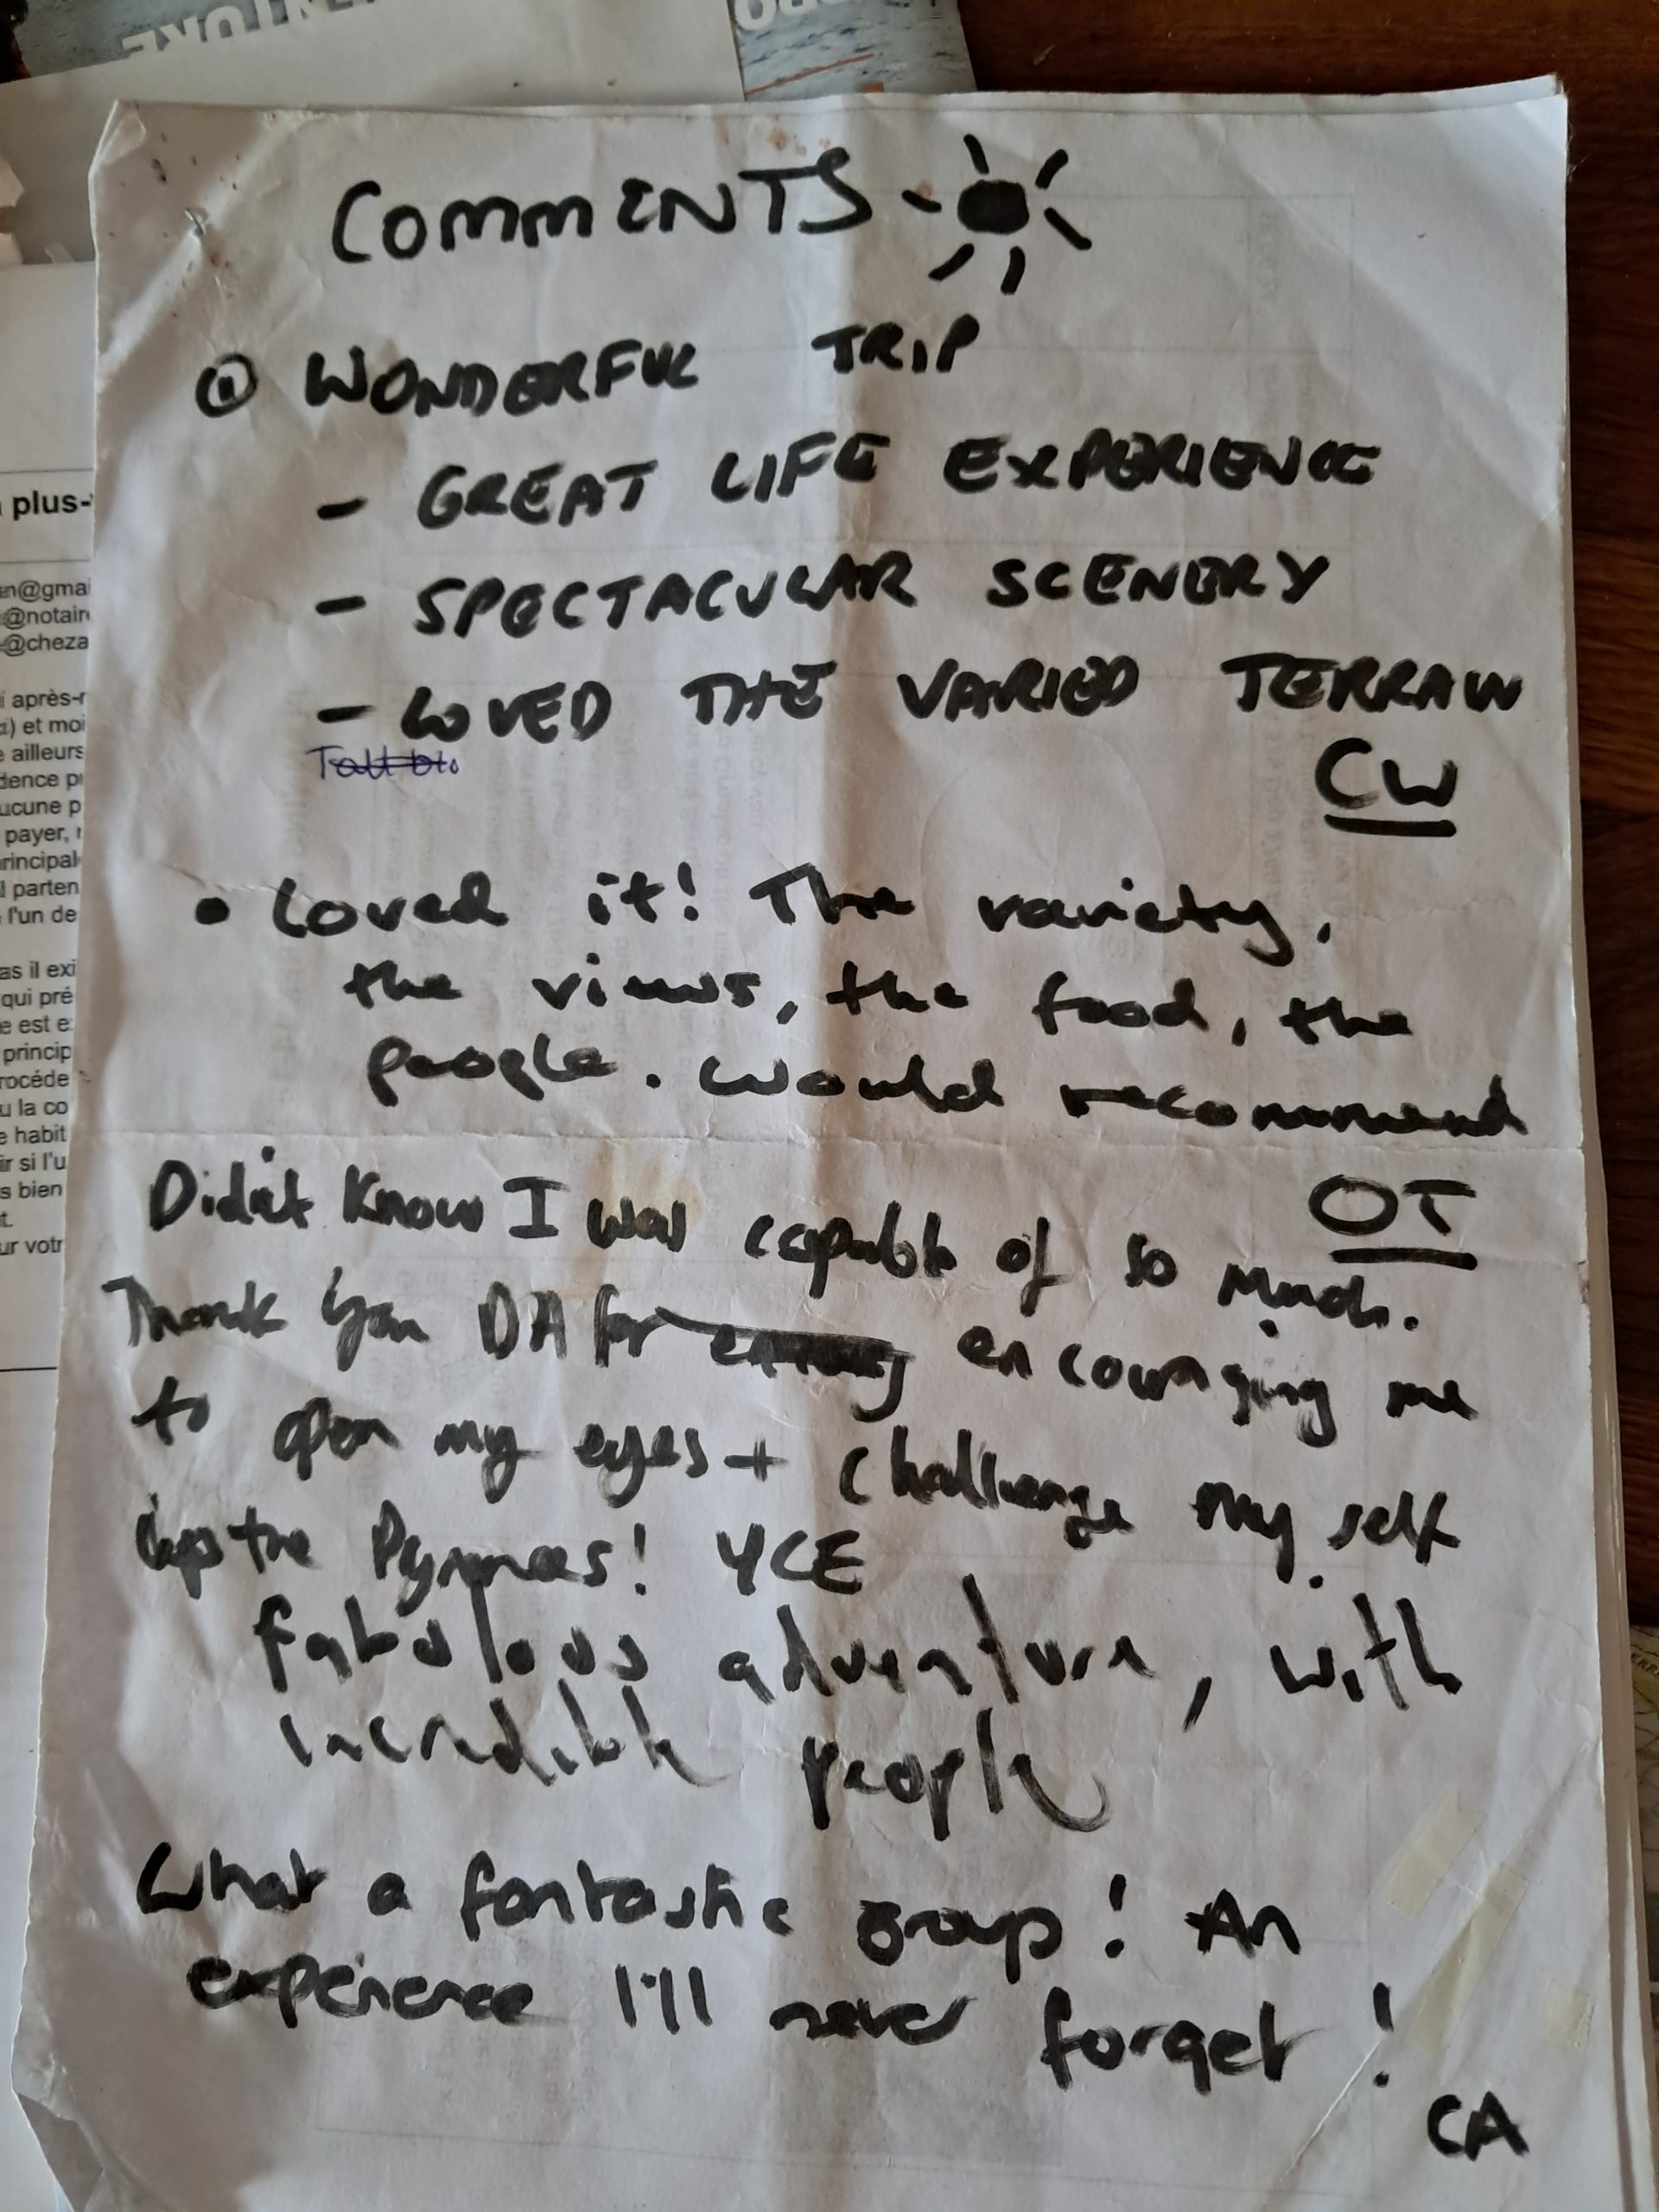 COMMENTS
WONDERFUL TRIP
- GREAT LIFE EXPERIENCE
- SPECTACULAR SCENERY
- LOVED THE VARIED TERRAIN
CW
• Loved it! The variety,
the views, the food, the
people. Would recommend
OT
Didn't know I was capable of so much.
Thank you DA for encouraging me
to open my eyes + challenge my self
the Pyrenees! YCE
Fabulous adventure, with
incredible people
What a fantastic group! An
experience I'll never forget!
CA
plus-
en@gmai
@notair
@cheza
après-r
et moi
ailleurs
dence pr
ucune p
payer, r
rincipal
parten
l'un de
as il exi
qui pré
e est e
princip
rocéde
u la co
e habit
ir si l'u
s bien
t.
ur votr